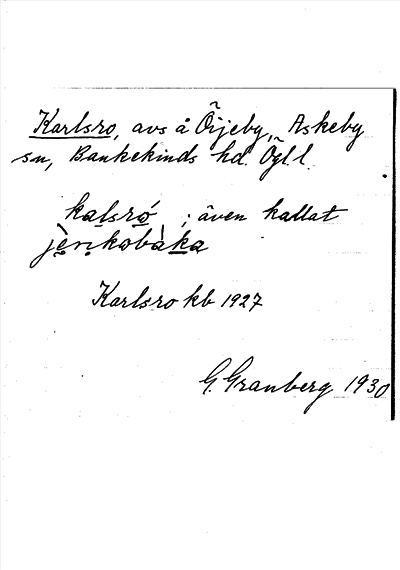 Karlsro, avs å Öijeby, Askeby
sn, Bankekinds hd. Ögl. l.
kalsró ; även kallat
jèrikobàka
Karlsro kb 1927
G. Granberg 1930